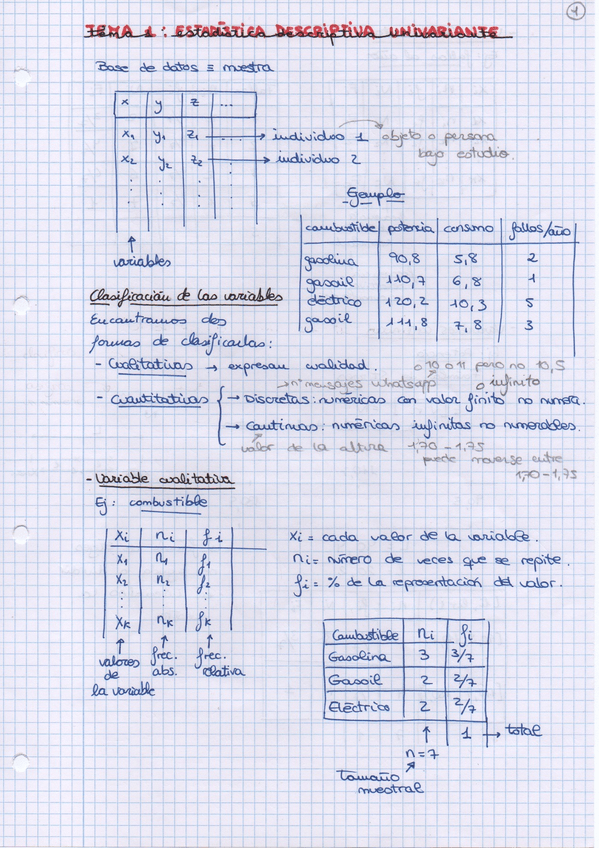 1
TEMA 1: ESTADÍSTICA DESCRIPTIVA UNIVARIANTE
Base de datos ≡ muestra
x y z ...
x₁ y₁ z₁ → individuo 1 objeto o persona
bajo estudio.
x₂ y₂ z₂ → individuo 2
variables
Ejemplo
combustible potencia consumo fallos/año
gasolina 90,8 5,8 2
gasoil 110,7 6,8 1
eléctrico 120,2 10,3 5
gasoil 111,8 7,8 3
Clasificación de las variables
Encontramos dos
formas de clasificarlas:
- Cualitativas → expresan cualidad. o 10 o 11 pero no 10,5
→ nº mensajes whatsapp o infinito
- Cuantitativas { → Discretas: numéricas con valor finito no numera.
→ Continuas: numéricas infinitas no numerables.
valor de la altura 1,70 – 1,75
puede moverse entre
1,70 – 1,75
- Variable cualitativa
Ej: combustible
Xi ni fi
X₁ n₁ f₁
X₂ n₂ f₂
Xk nk fk
valores de la variable
frec. abs.
frec. relativa
Xi = cada valor de la variable.
ni = número de veces que se repite.
fi = % de la representación del valor.
Combustible ni fi
Gasolina 3 3/7
Gasoil 2 2/7
Eléctrico 2 2/7
1 → total
n = 7
Tamaño
muestral